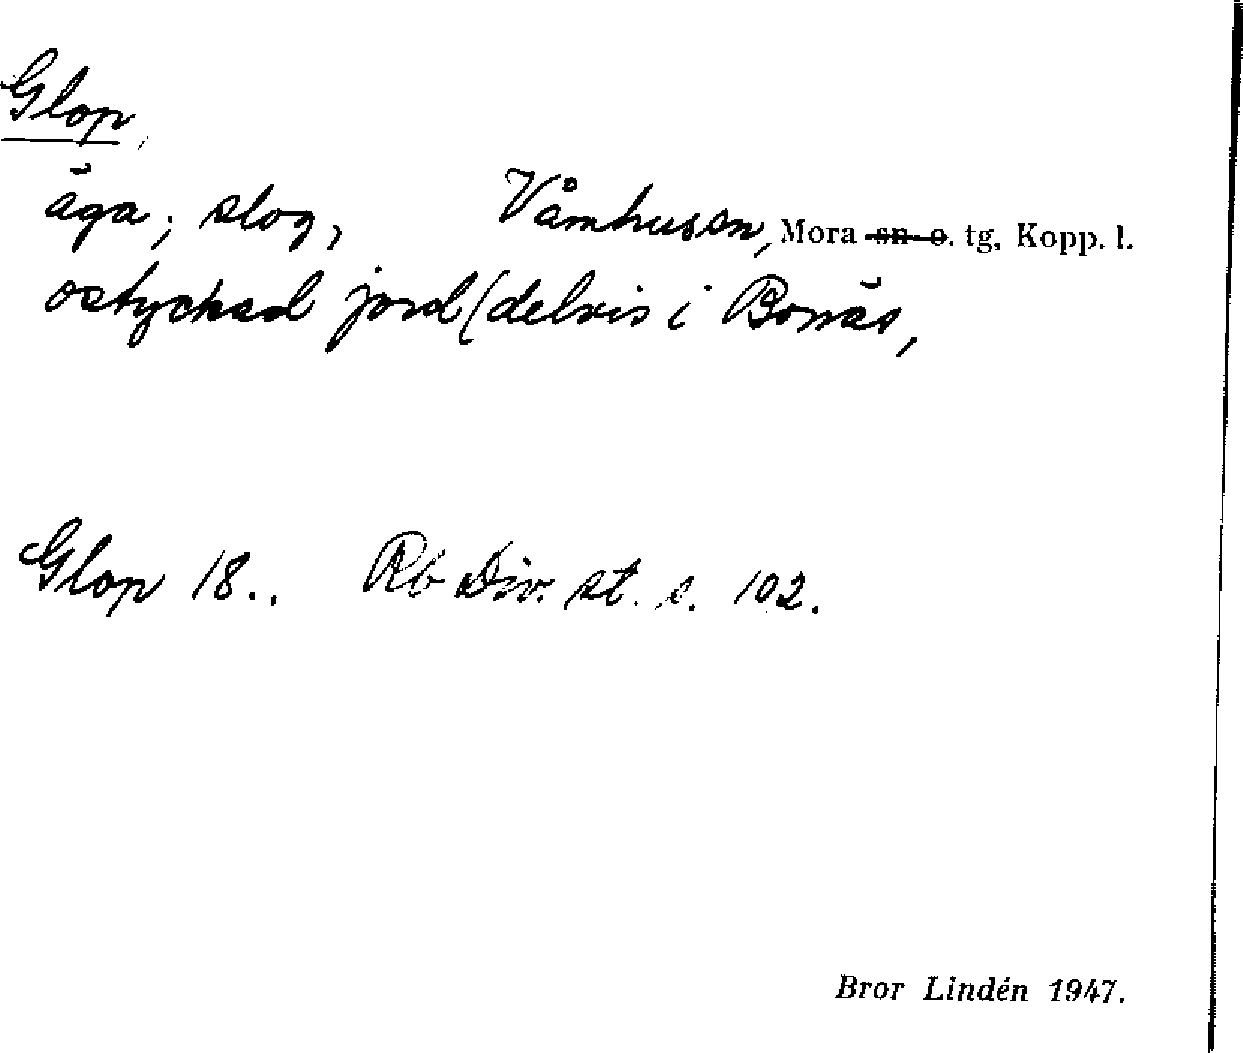 Glop,
äga, slog, Våmhus sn, Mora sn o. tg, Kopp. l.
ostyckad jord (delvis i Bonäs,
Glop 18.. Rb Div. st. s. 102.
Bror Lindén 1947.